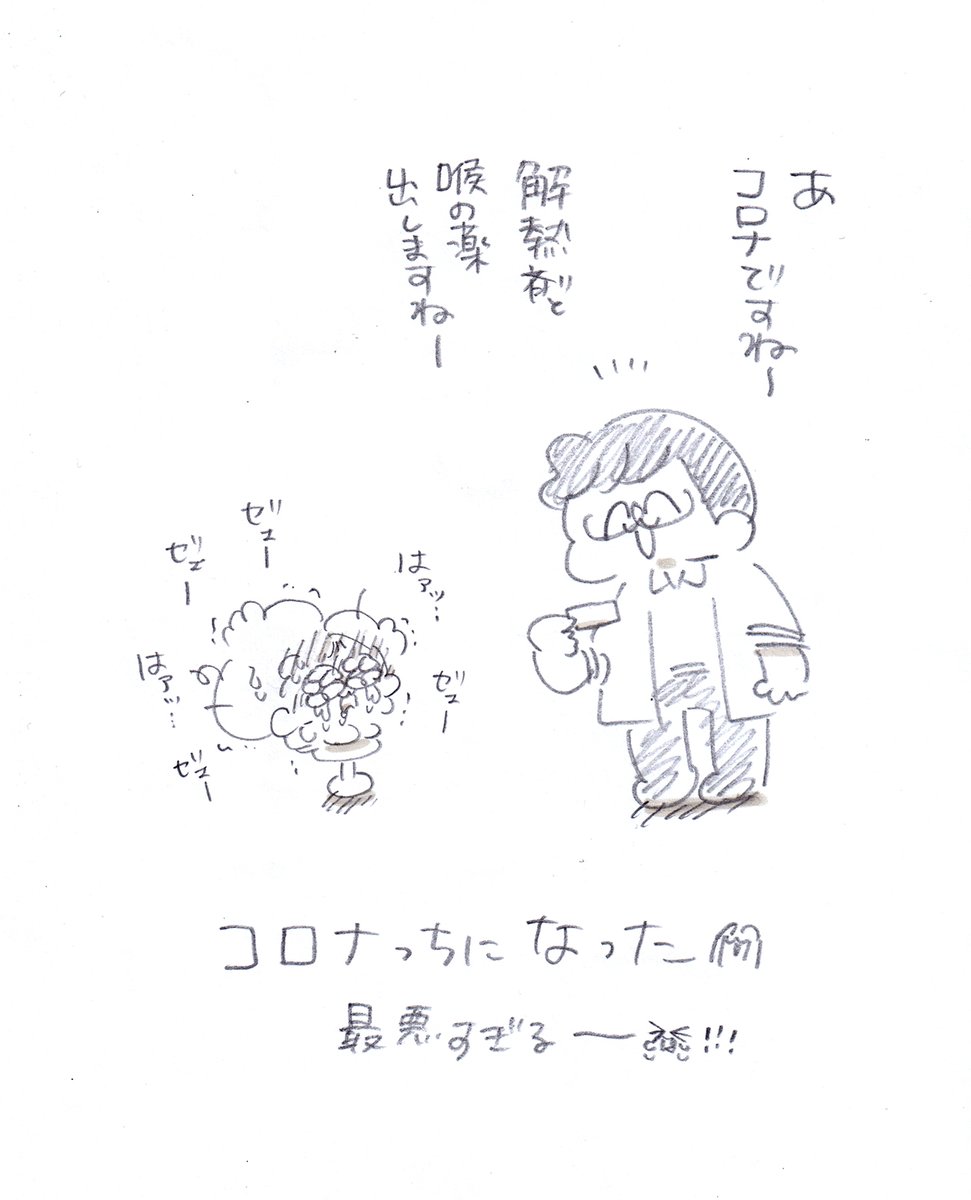 あ
コロナですねー
解熱剤と
喉の薬
出しますねー
ゼェー
ゼェー
はァッ…
はァッ…
ゼェー
ゼェー
コロナっちになった
最悪すぎるー!!!